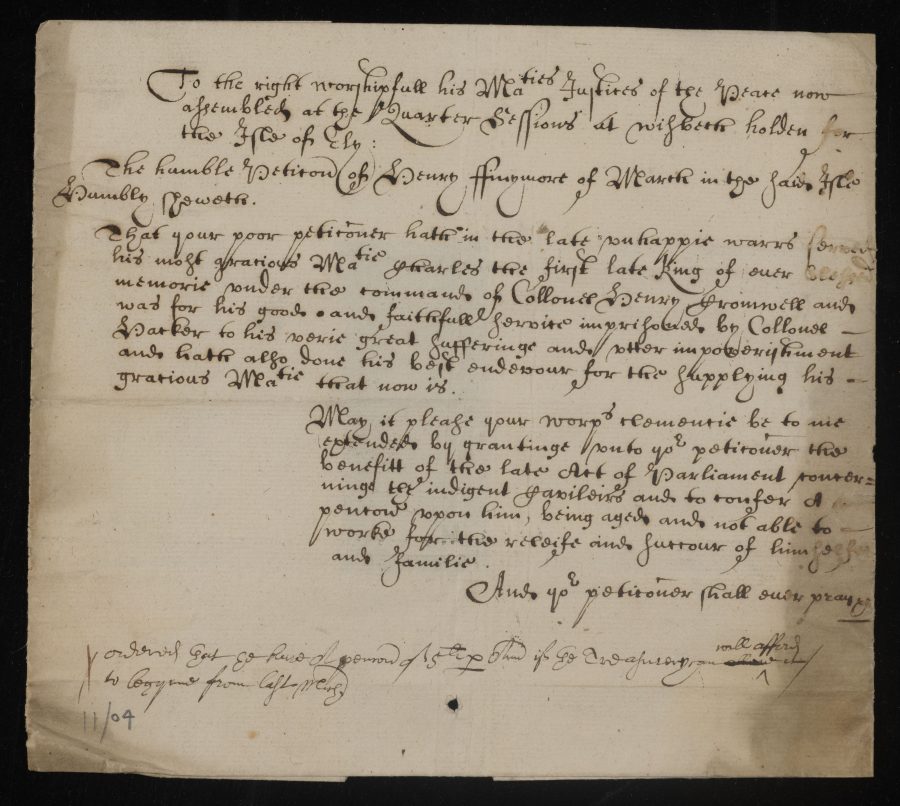 To the right worshipfull his Ma^ties Justices of the Peace now
assembled at the Quarter Sessions at wisbech holden for
the Isle of Ely:
The humble Peticon of Henry ffinymore of March in the said Isle
Humbly sheweth.
That your poor peticoner hath in the late vnhappie warrs served
his most gracious Ma^tie Charles the first late King of ever blessed
memorie vnder the command of Collonel Henry Cromwell and
was for his good and faithfull service imprisoned by Collonel
Hacker to his verie great sufferinge and vtter impoverishment
and hath also done his best endevour for the supplying his
gracious Ma^tie that now is.
May it please your wor^ps clemencie be to me
extended by grantinge vnto yo^r peticoner the
benefitt of the late Act of Parliament concer=
ninge the indigent Cavileirs and to confer A
pencon vpon him, being aged and not able to
worke for the releife and succour of himselfe
and Familie.
And yo^r peticoner shall ever pray &c
ordered that he have A pencon of 5^li p Ann if the Treasurery can will afford it
to begynne from last
11/04